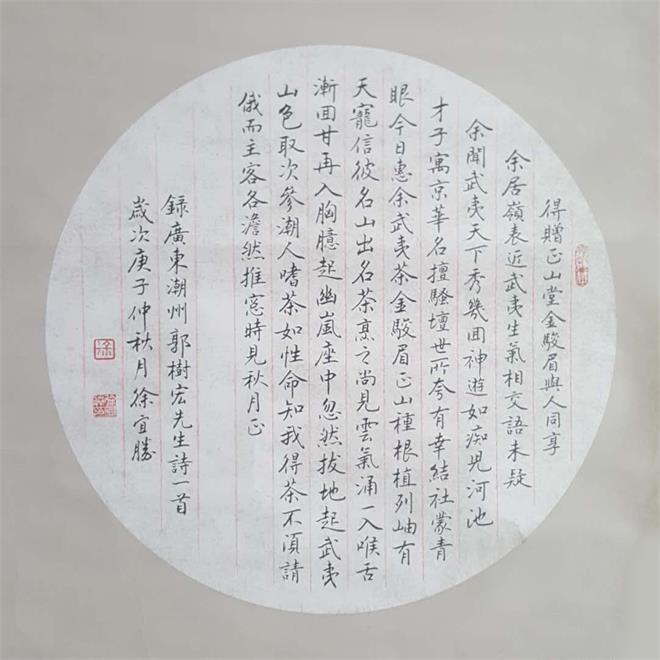 得贈正山堂金駿眉與人同享
余居嶺表近武夷生氣相交語未疑
余聞武夷天下秀幾囬神遊如痴児河池
才子寓京華名擅騷壇世所夸有幸結社蒙青
眼今日惠余武夷茶金駿眉正山種根植列岫有
天寵信彼名山出名茶烹之尚見雲氣涌一入喉舌
漸囬甘再入胸臆起幽嵐座中忽然拔地起武夷
山色取次參潮人嗜茶如性命知我得茶不須請
俄而主客各澹然推窓時見秋月正
錄廣東潮州郭樹宏先生詩一首
歲次庚子仲秋月徐宜勝
徐